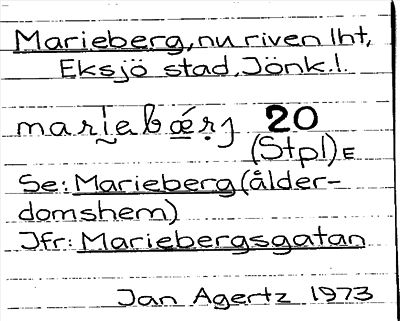 Marieberg, nu riven lht,
Eksjö stad, Jönk. l.
mari̯abǽ̱rj 20
(Stpl) E
Se: Marieberg (ålder-
domshem)
Jfr: Mariebergsgatan
Jan Agertz 1973